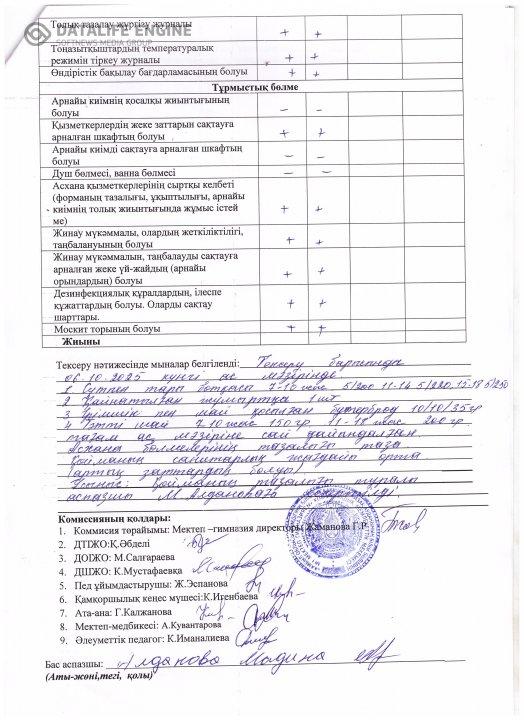 Толық тазалау жүргізу журналы + +
DATALIFE ENGINE
SOFTNEWS MEDIA GROUP
Тоңазытқыштардың температуралық
режимін тіркеу журналы + +
Өндірістік бақылау бағдарламасының болуы + +
Тұрмыстық бөлме
Арнайы киімнің қосалқы жиынтығының
болуы – –
Қызметкерлердің жеке заттарын сақтауға
арналған шкафтың болуы + +
Арнайы киімді сақтауға арналған шкафтың
болуы – –
Душ бөлмесі, ванна бөлмесі – –
Асхана қызметкерлерінің сыртқы келбеті
(форманың тазалығы, ұқыптылығы, арнайы
киімнің толық жиынтығында жұмыс істей
ме) + +
Жинау мүкаммалы, олардың жеткіліктілігі,
таңбалануының болуы + +
Жинау мүкаммалын, таңбалауды сақтауға
арналған жеке үй-жайдың (арнайы
орындардың) болуы + +
Дезинфекциялық құралдардың, ілеспе
құжаттардың болуы. Оларды сақтау
шарттары. + +
Москит торының болуы + +
Жиыны
Тексеру нәтижесінде мыналар белгіленді: Тексеру барысында
06.10.2025 күнгі ас мәзірінде
1 Сүтпен тары ботқасы 7-10 жас 5/200 11-14 5/220, 15-18 5/250
2 Қайнатылған жұмыртқа 1 шт
3 Ірімшік пен май қосылған бутерброд 10/10/35 гр
4 Тәтті шай 7-10 жас 150 гр 11-18 жас 200 гр
тағам ас мәзіріне сай дайындалған.
Асхана бөлмелерінің тазалығы таза.
Қойманың санитарлық жағдайы орта
(артық заттардың болуы)
Ұсыныс: Қойманың тазалығы туралы
аспазшы М.Алдановаға ескертілді.
Комиссияның қолдары:
1. Комиссия төрайымы: Мектеп –гимназия директоры Жаманова Г.Р.
2. ДТІЖО:Қ.Әбделі
3. ДОІЖО: М.Салғараева
4. ДШЖО: К.Мустафаевқа
5. Пед ұйымдастырушы: Ж.Эспанова
6. Қамқоршылық кеңес мүшесі:К.Игенбаева
7. Ата-ана: Г.Калжанова
8. Мектеп-медбикесі: А.Кувантарова
9. Әлеуметтік педагог: К.Иманалиева
Бас аспазшы: Алданова Мадина
(Аты-жөні,тегі, қолы)